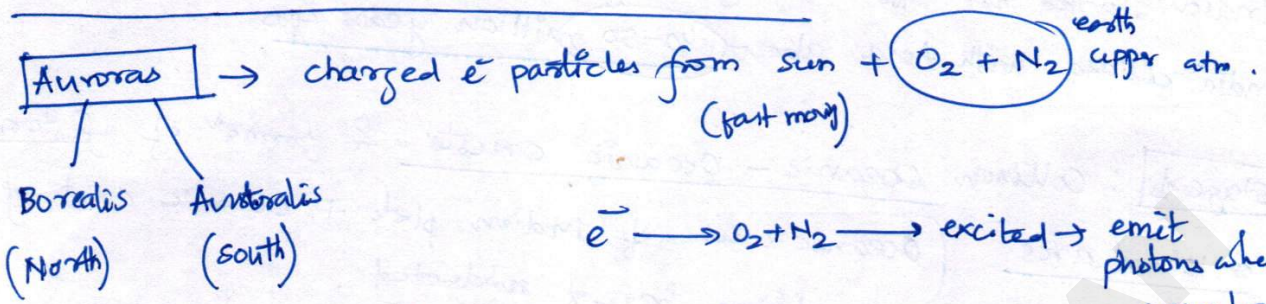 Auroras → charged e⁻ particles from sun + O₂ + N₂ earth upper atm.
(fast moving)
Borealis Australis
(North) (South)
e⁻ → O₂ + N₂ → excited → emit
photons